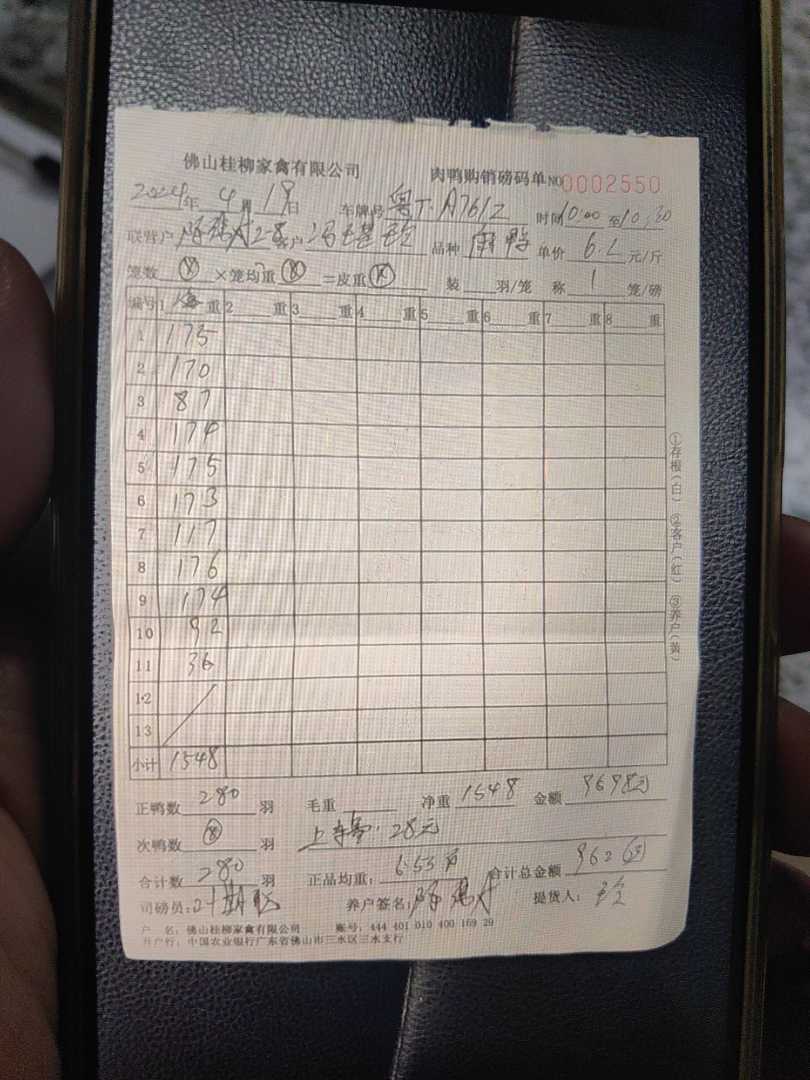 佛山桂柳家禽有限公司 肉鸭购销磅码单 NO 0002550
2024年 4月 19日 车牌号 粤T·A7612 时间 10:00 至 10:30
联营户 客户 品种 单价 6.2 元/斤
笼数 ⊗ ×笼均重 ⊗ =皮重 ⊗ 装 羽/笼 称 1 笼/磅
编号 1 重 2 重 3 重 4 重 5 重 6 重 7 重 8 重
1 175
2 170
3 87
4 174
5 175
6 173
7 117
8 176
9 174
10 92
11 36
12
13
小计 1548
正鸭数 280 羽 毛重 净重 1548 金额
次鸭数 ⊗ 羽 上车费:28元
合计数 280 羽 正品均重: 合计总金额
司磅员: 养户签名: 提货人:
户 名:佛山桂柳家禽有限公司 账号:444 401 010 400 169 29
开户行:中国农业银行广东省佛山市三水区三水支行
①存根(白) ②客户(红) ③养户(黄)